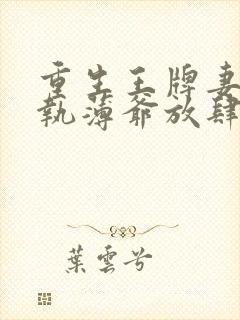 重生王牌妻
執薄爺放肆
葉雲兮